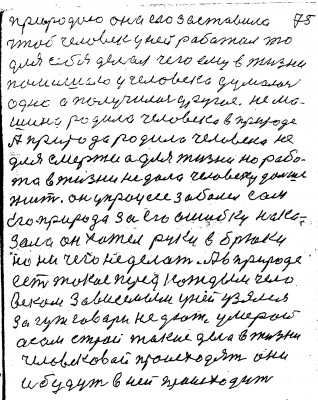 природою она его заставила 75
чтоб человек у ней работал то
для себя делал чего ему в жизни
помишало у человека думалось
одно а получилось другое. не ма-
шина родила человека в природе
А природа родила человека не
для смерти а для жизни но рабо-
та в жизни не дала человеку дольше
жит. он у процессе заболел сам
Его природа за его ошибку нака-
зала он хотел руки в брюки
но ни чего не делат. А в природе
есть такое перед каждым чело
веком зависемым у ней узялся
за гуж говари не дюж. умерай
а сам строй такие дела в жизни
человековай происходят они
и будут в ней происходит